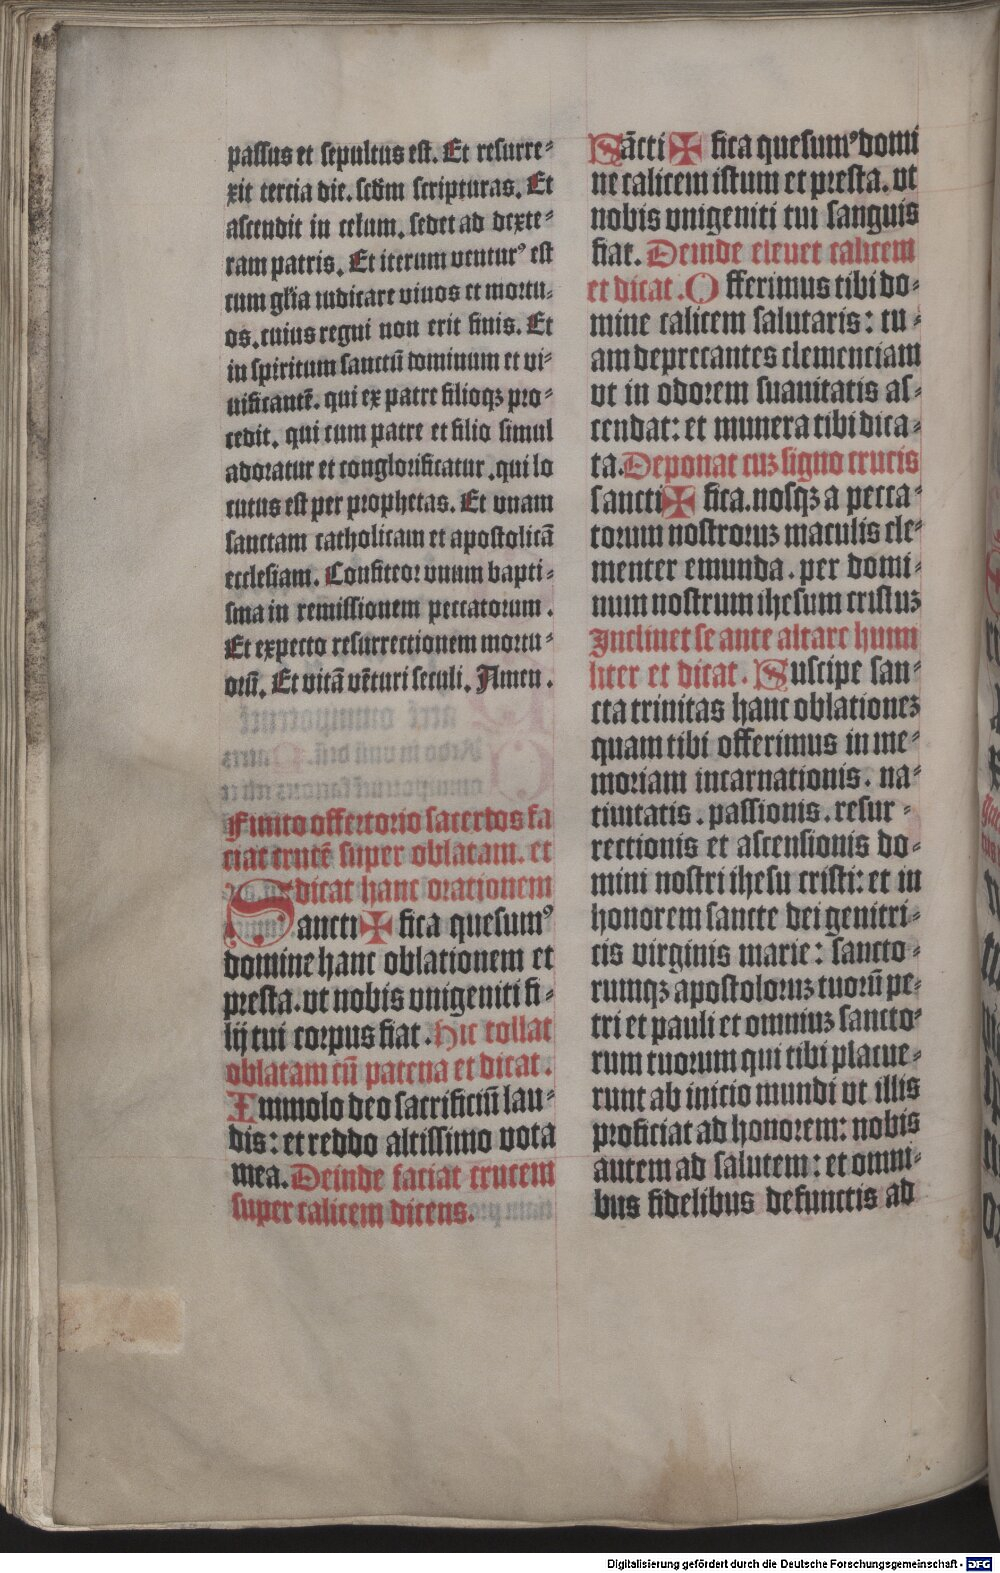 passus et sepultus est. Et resurre-
xit tercia die. scd̄m scripturas. Et
ascendit in celum. sedet ad dexte-
ram patris. Et iterum ventur⁹ est
cum gl̄ia iudicare viuos et mortu-
os. cuius regni non erit finis. Et
in spiritum sanctū dominum et vi-
uificantē. qui ex patre filioqꝫ pro-
cedit. qui cum patre et filio simul
adoratur et conglorificatur. qui lo
cutus est per prophetas. Et vnam
sanctam catholicam et apostolicā
ecclesiam. Confiteor vnum bapti-
sma in remissionem peccatorum.
Et expecto resurrectionem mortu-
orū. Et vitā vēturi seculi. Amen.
Finito offertorio sacerdos fa
ciat crucē super oblatam. et
dicat hanc orationem
Sancti ✠ fica quesum⁹
domine hanc oblationem et
presta. vt nobis vnigeniti fi-
lij tui corpus fiat. Hic tollat
oblatam cū patena et dicat.
Immolo deo sacrificiū lau-
dis: et reddo altissimo vota
mea. Deinde faciat crucem
super calicem dicens.
Sācti ✠ fica quesum⁹ domi
ne calicem istum et presta. vt
nobis vnigeniti tui sanguis
fiat. Deinde eleuet calicem
et dicat. Offerimus tibi do-
mine calicem salutaris: tu-
am deprecantes clemenciam
vt in odorem suauitatis as-
cendat: et munera tibi dica-
ta. Deponat cuꝫ signo crucis
sancti ✠ fica. nosqꝫ a pecca-
torum nostroruꝫ maculis cle-
menter emunda. per domi-
num nostrum ihesum cristuꝫ
Inclinet se ante altare humi
liter et dicat. Suscipe san-
cta trinitas hanc oblationeꝫ
quam tibi offerimus in me-
moriam incarnationis. na-
tiuitatis. passionis. resur-
rectionis et ascensionis do-
mini nostri ihesu cristi: et in
honorem sancte dei genitri-
cis virginis marie: sancto-
rumqꝫ apostoloruꝫ tuorū pe-
tri et pauli et omniuꝫ sancto-
rum tuorum qui tibi placue-
runt ab inicio mundi vt illis
proficiat ad honorem: nobis
autem ad salutem: et omni-
bus fidelibus defunctis ad
Digitalisierung gefördert durch die Deutsche Forschungsgemeinschaft - DFG